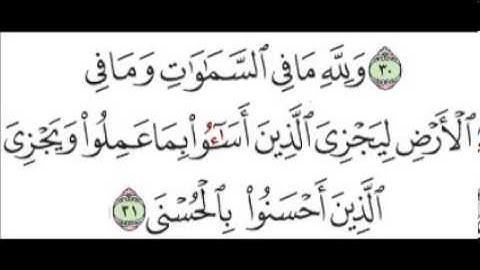 ٣٠ وَلِلَّهِ مَا فِي ٱلسَّمَٰوَٰتِ وَمَا فِي
ٱلْأَرْضِ لِيَجْزِيَ ٱلَّذِينَ أَسَٰٓـُٔوا۟ بِمَا عَمِلُوا۟ وَيَجْزِيَ
ٱلَّذِينَ أَحْسَنُوا۟ بِٱلْحُسْنَى ٣١